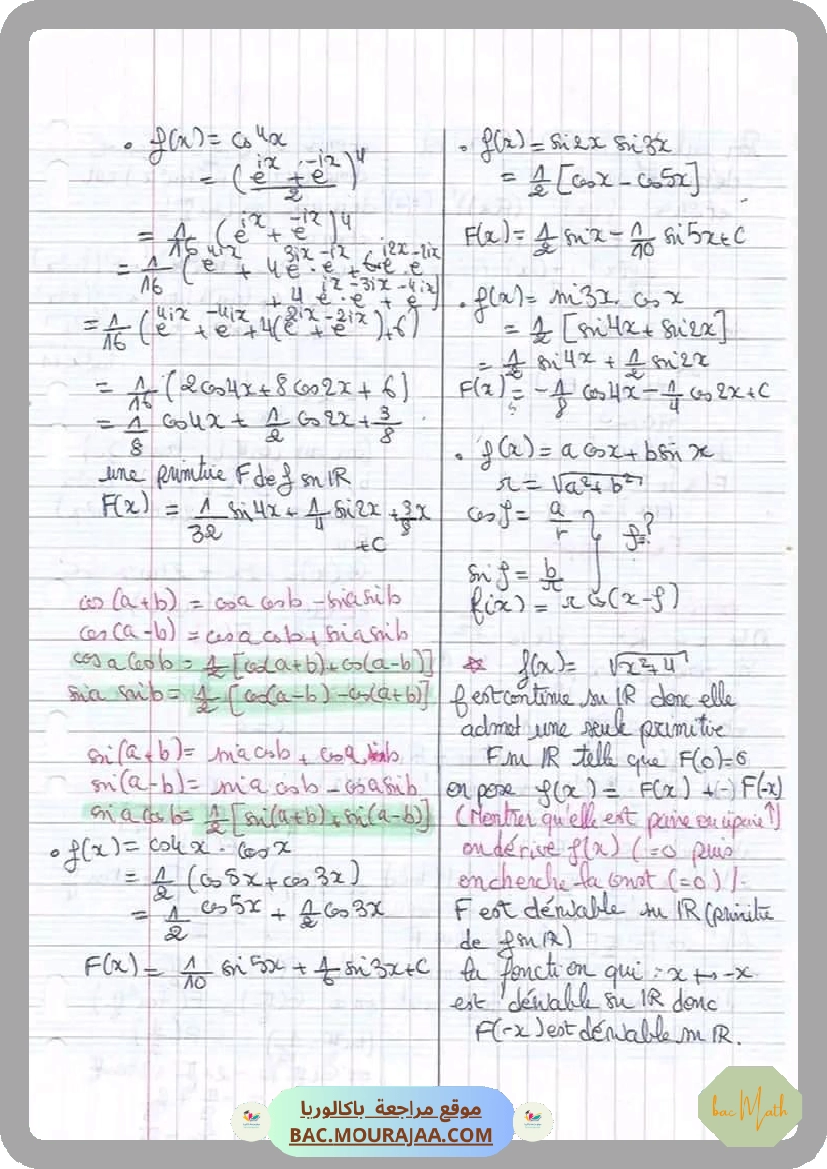 • f(x) = cos⁴x
= ( (e^{ix} + e^{-ix}) / 2 )⁴
= 1/16 ( e^{ix} + e^{-ix} )⁴
= 1/16 ( e^{4ix} + 4 e^{3ix} . e^{-ix} + 6 e^{i2x} . e^{-2ix}
+ 4 e^{ix} . e^{-3ix} + e^{-4ix} )
= 1/16 ( e^{4ix} + e^{-4ix} + 4( e^{2ix} + e^{-2ix} ) + 6 )
= 1/16 ( 2cos4x + 8cos2x + 6 )
= 1/8 cos4x + 1/2 cos2x + 3/8
une primitive F de f sur IR
F(x) = 1/32 sin4x + 1/4 sin2x + 3/8 x
+ C
cos(a+b) = cosa cosb - sina sinb
cos(a-b) = cosa cosb + sina sinb
cosa cosb = 1/2 [cos(a+b) + cos(a-b)]
sina sinb = 1/2 [cos(a-b) - cos(a+b)]
sin(a+b) = sina cosb + cosa sinb
sin(a-b) = sina cosb - cosa sinb
sina cosb = 1/2 [sin(a+b) + sin(a-b)]
• f(x) = cos4x . cosx
= 1/2 (cos5x + cos3x)
= 1/2 cos5x + 1/2 cos3x
F(x) = 1/10 sin5x + 1/6 sin3x + C
• f(x) = sin2x sin3x
= 1/2 [cosx - cos5x]
F(x) = 1/2 sinx - 1/10 sin5x + C
• f(x) = sin3x . cosx
= 1/2 [sin4x + sin2x]
= 1/2 sin4x + 1/2 sin2x
F(x) = -1/8 cos4x - 1/4 cos2x + C
• f(x) = a cosx + b sin x
r = √(a²+b²)
cosφ = a/r
φ = ?
sinφ = b/r
f(x) = r cos(x-φ)
* f(x) = √(x²+4)
f est continue su IR donc elle
admet une seule primitive
F su IR telle que F(0)=0
on pose φ(x) = F(x) + (-) F(-x)
(Montrer qu'elle est paire ou impaire !)
on dérive φ(x) (=0 puis
on cherche la const (=0) /.
F est dérivable su IR (primitive
de f su IR)
la fonction qui : x ↦ -x
est dérivable su IR donc
F(-x) est dérivable su IR.
موقع مراجعة باكالوريا
BAC.MOURAJAA.COM
bac Math